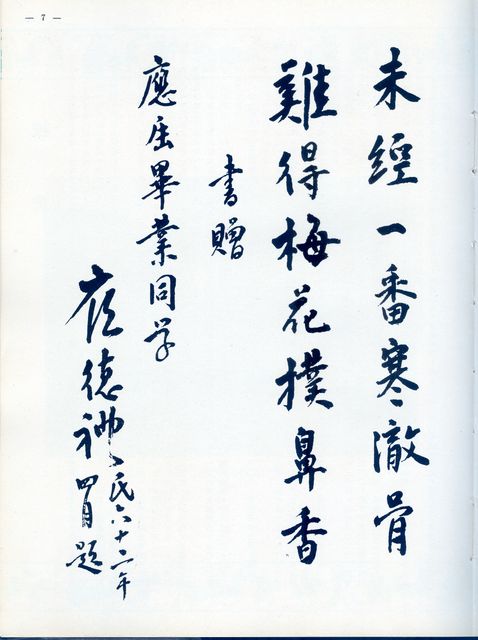 — 7 —
未經一番寒澈骨
難得梅花撲鼻香
書贈
應屆畢業同学
崔德禮
民六十二年
四月題